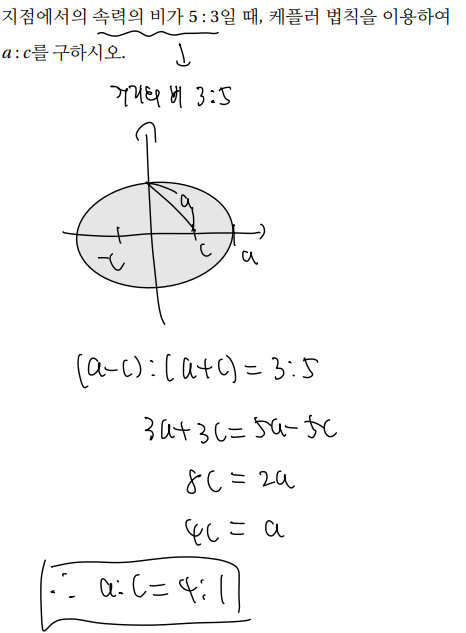 지점에서의 속력의 비가 5 : 3일 때, 케플러 법칙을 이용하여
a : c를 구하시오.
거리의 비 3:5
a
-c
c
a
(a-c):(a+c)=3:5
3a+3c=5a-5c
8c=2a
4c=a
∴ a:c=4:1